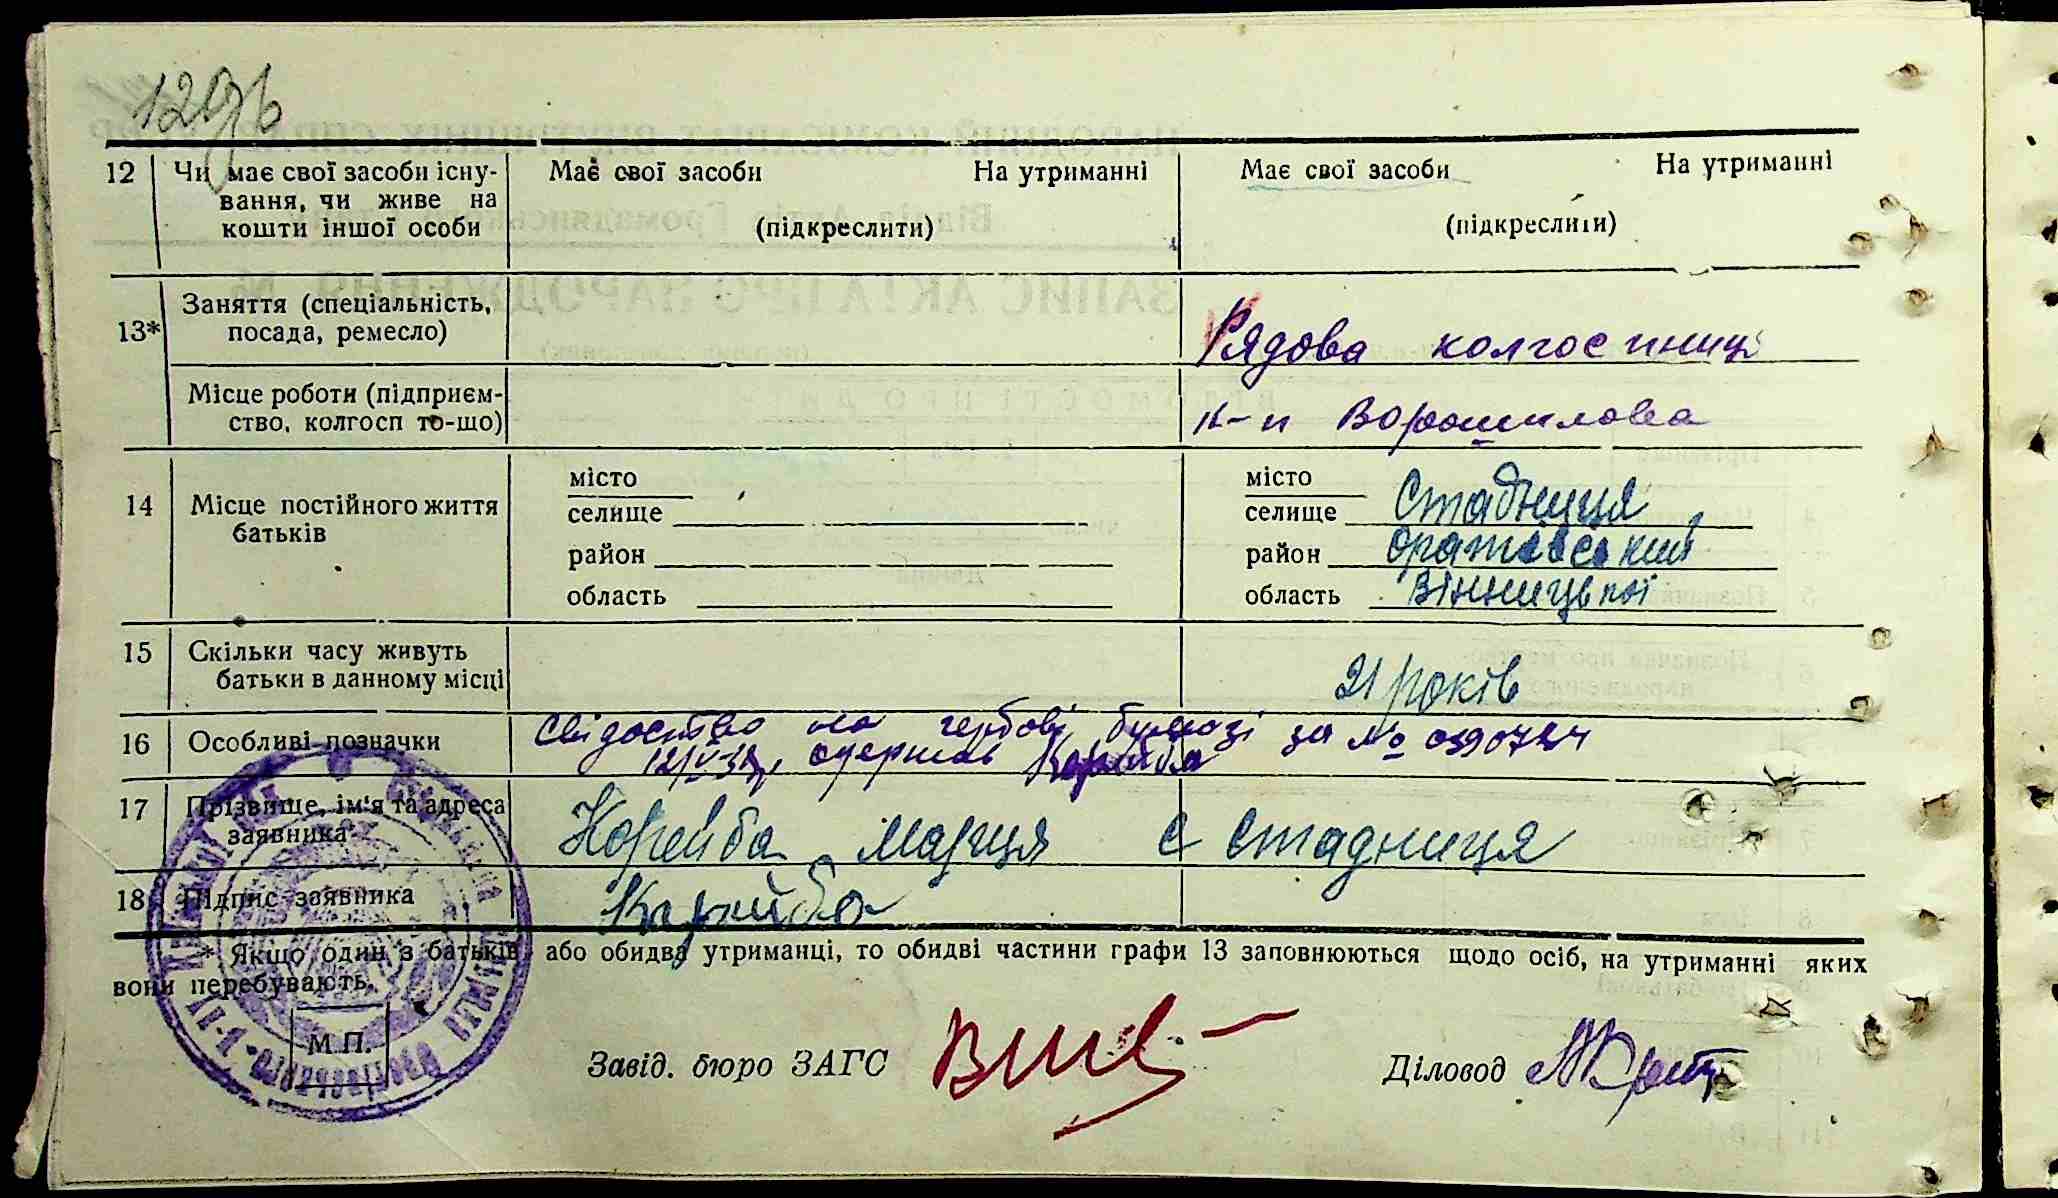 12 Чи має свої засоби існу-
вання, чи живе на
кошти іншої особи
Має свої засоби На утриманні
(підкреслити)
Має свої засоби На утриманні
(підкреслити)
13* Заняття (спеціальність,
посада, ремесло)
Рядова колгоспниця
Місце роботи (підприєм-
ство, колгосп то-що)
к-п Ворошилова
14 Місце постійного життя
батьків
місто
селище
район
область
місто
селище Стадниця
район Оратовський
область Вінницької
15 Скільки часу живуть
батьки в данному місці
21 років
16 Особливі позначки
Свідоство на гербові бумазі за №
одержав
17 Прізвище, ім'я та адреса
заявника
Корейба Мариця с Стадниця
18 Підпис заявника
* Якщо один з батьків або обидва утриманці, то обидві частини графи 13 заповнюються щодо осіб, на утриманні яких
вони перебувають.
М.П.
Завід. бюро ЗАГС
Діловод